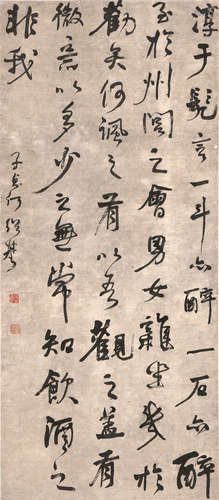 淳于髡言一斗亦醉一石亦醉
至於州閭之會男女雜坐幾於
勸矣何諷之有以吾觀之蓋有
微意以多少之無常知飲酒之
非我
子貞何紹基